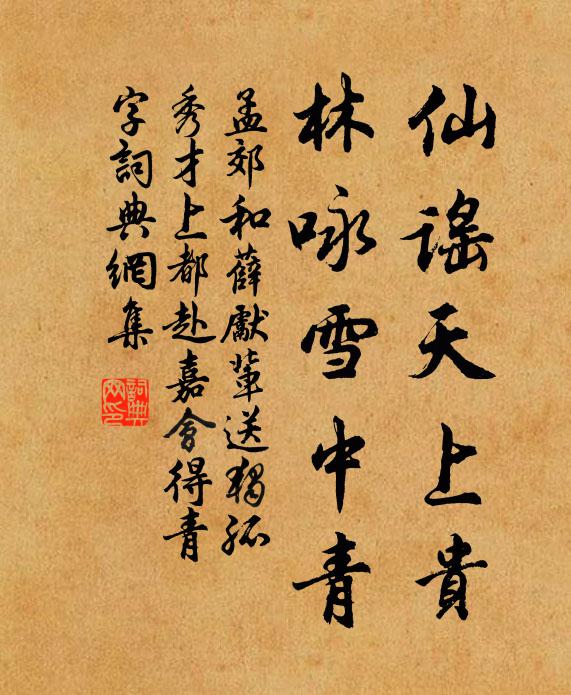 仙謠天上貴
林咏雪中青
孟郊和薛獻輩送獨孤
秀才上都赴嘉會得青
字詞典網集
詞典網印